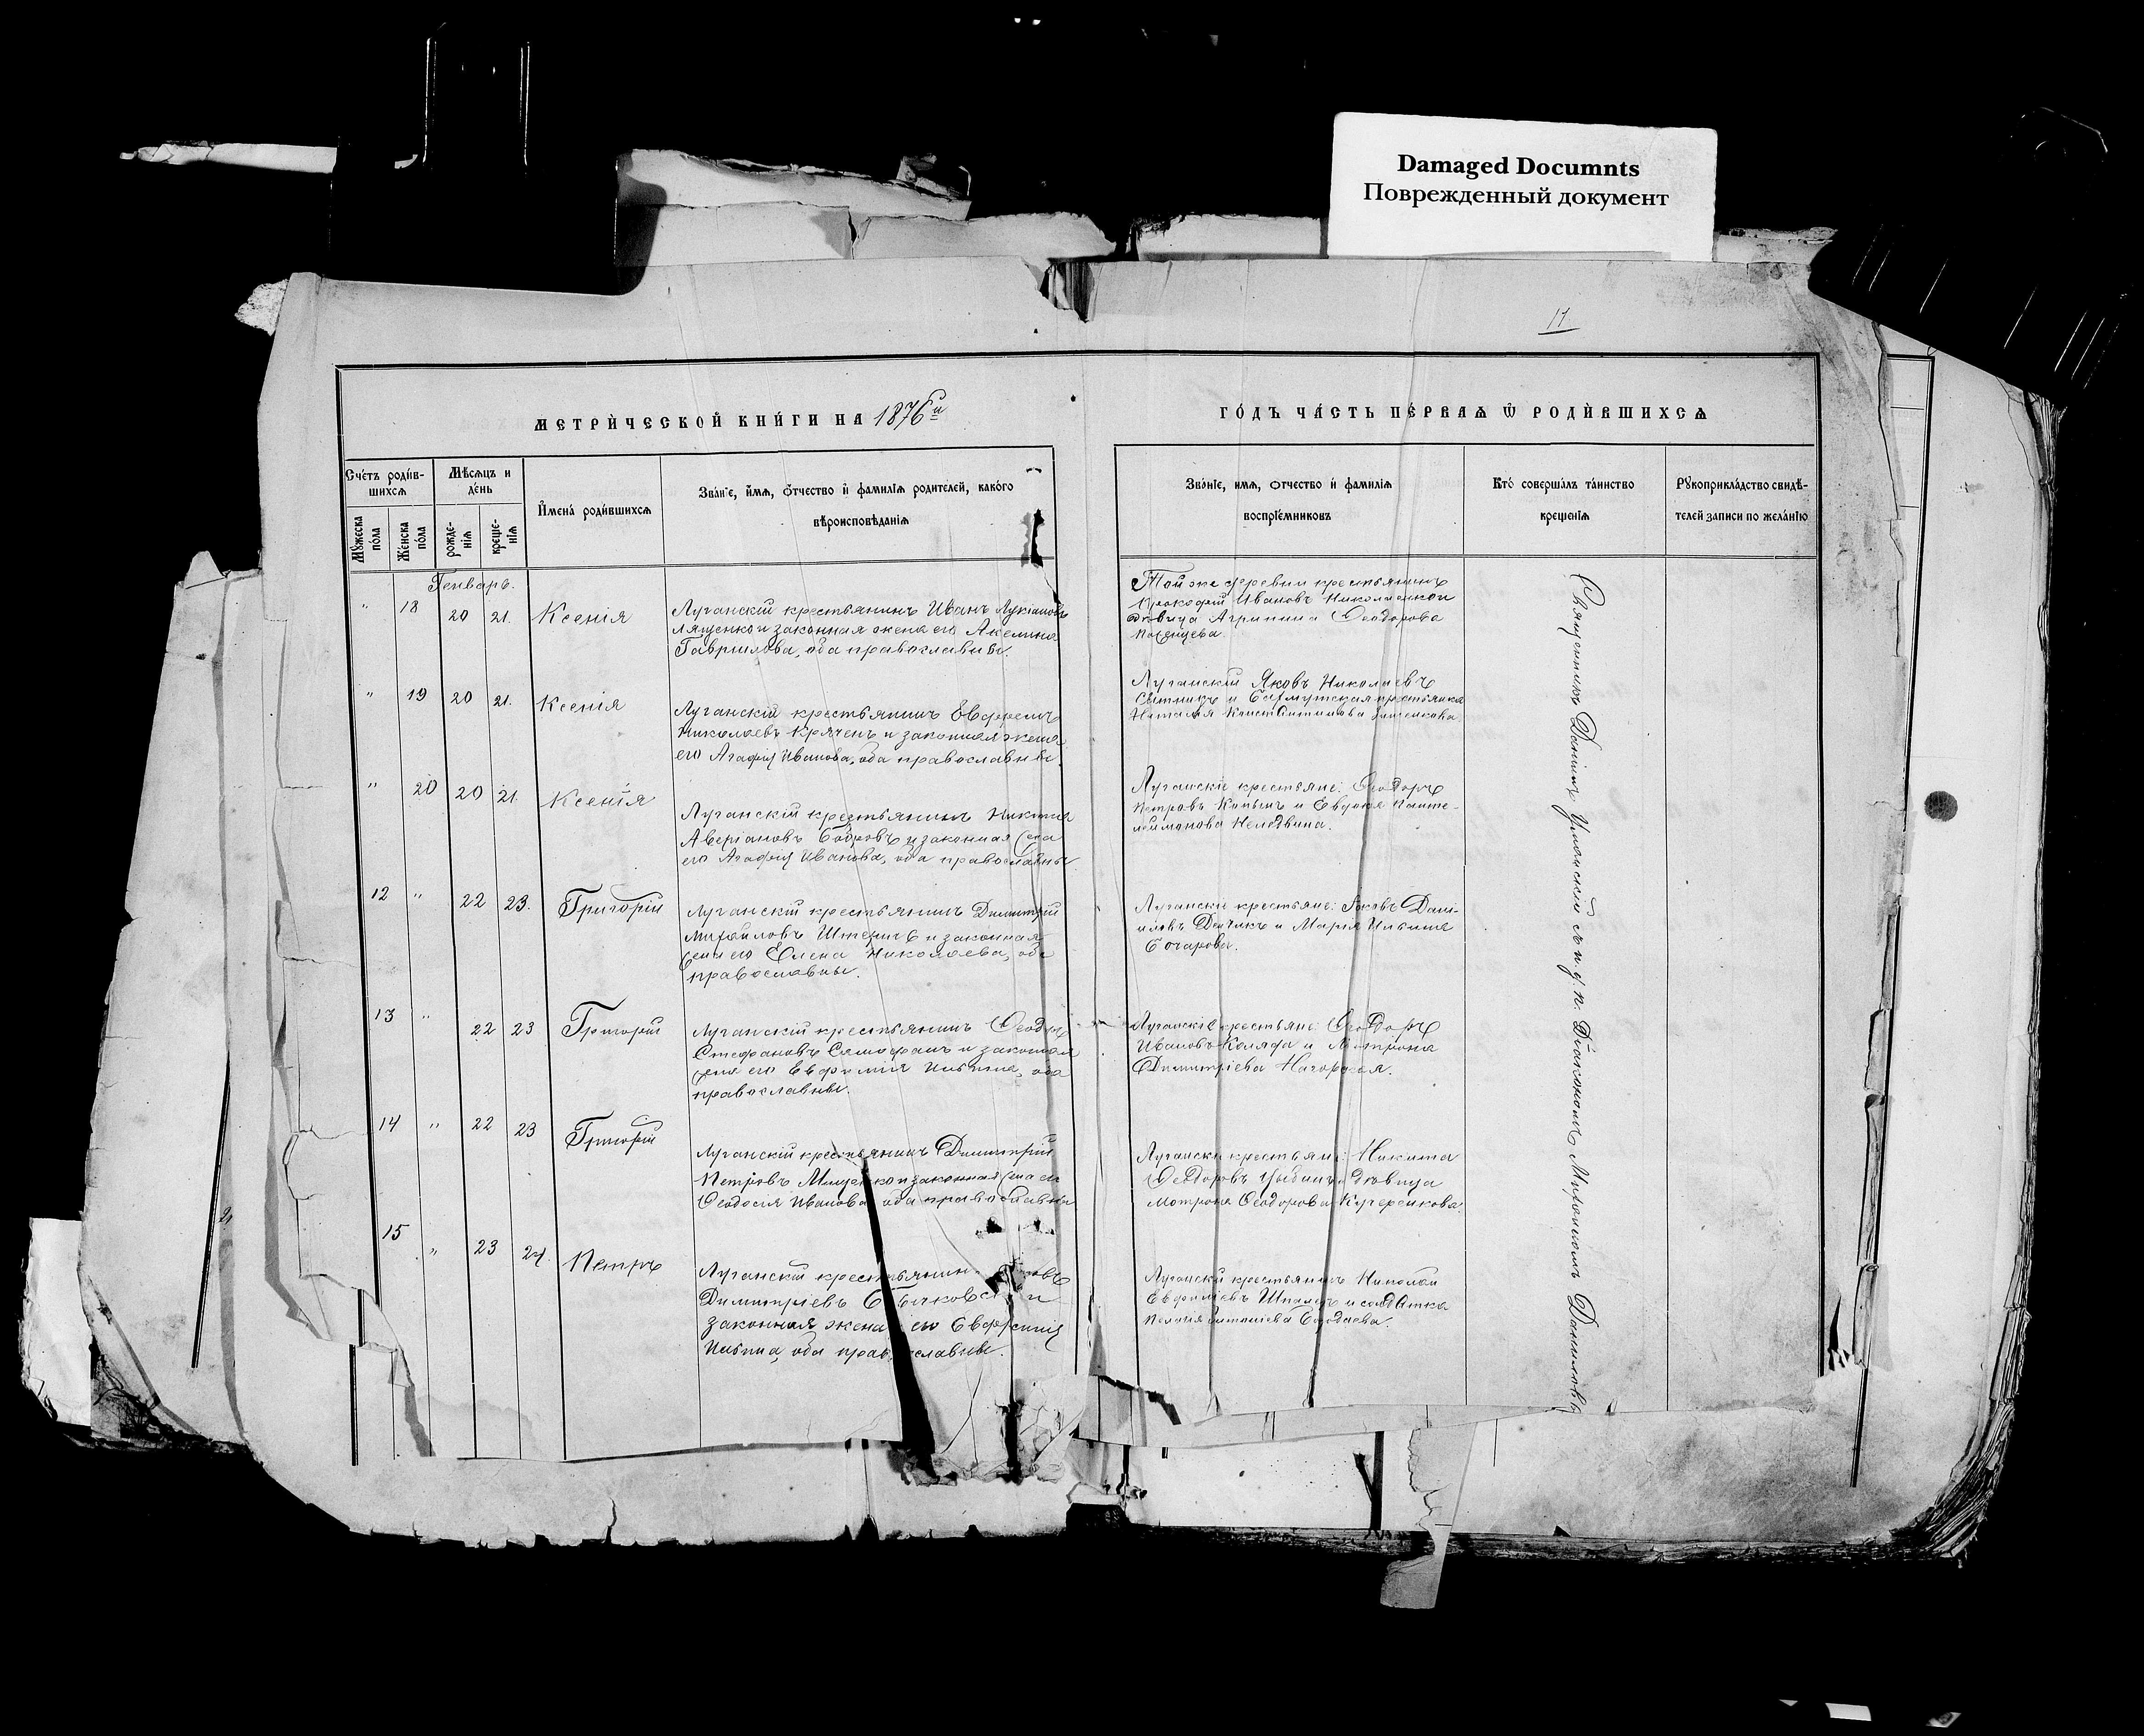 Damaged Documnts
Поврежденный документ
11
МЕТРИЧЕСКОЙ КНИГИ НА 1876й
ГОДЪ ЧАСТЬ ПЕРВАЯ Ѡ РОДИВШИХСЯ
Счетъ родив-
шихся
Мѣсяцъ и
день
Мужеска
пола
Женска
пола
рожде-
нія
креще-
нія
Имена родившихся
Званіе, имя, отчество и фамилія родителей, какого
вѣроисповѣданія
Званіе, имя, отчество и фамилія
воспріемниковъ
Кто совершалъ таинство
крещенія
Рукоприкладство свидѣ-
телей записи по желанію
Генварь.
" 18 20 21. Ксенія
Луганскій крестьянинъ Иванъ Лукіановъ
Лященко и законная жена его Акелина
Гаврилова, оба православны.
Той же деревни крестьянинъ
Прокофій Ивановъ
дѣвица Агрипина Ѳеодорова
" 19 20 21. Ксенія
Луганскій крестьянинъ Евфремъ
Николаевъ Кряченъ и законная жена
его Агафія Иванова, оба православны.
Луганскій Яковъ Николаевъ
Ситникъ и Бахмутская крестьянка
Наталія Константинова
" 20 20 21. Ксенія
Луганскій крестьянинъ Никита
Аверіановъ Бобровъ и законная жена
его Агафія Иванова, оба православны
Луганскіе крестьяне: Ѳеодоръ
Петровъ и Евдокія Панте-
леймонова
12 " 22 23. Григорій
Луганскій крестьянинъ Димитрій
Михайловъ и законная
жена его Елена Николаева, оба
православны.
Луганскіе крестьяне: Яковъ Дані-
иловъ и Марія Ильина
Бочарова.
13 " 22 23 Григорій
Луганскій крестьянинъ Ѳеодоръ
Стефановъ и законная
жена его Евфимія Ильина, оба
православны.
Луганскіе крестьяне: Ѳеодоръ
Ивановъ Коляда и Мотрона
Димитріева Нагорная.
14 " 22 23 Григорій
Луганскій крестьянинъ Димитрій
Петровъ и законная жена его
Ѳеодосія Иванова оба православны
Луганскіе крестьяне: Никита
Ѳеодоровъ Цыбинъ и дѣвица
Мотрона Ѳеодорова Кучеренкова.
15 " 23 24. Петръ
Луганскій крестьянинъ
Димитріевъ и
законная жена его Евфимія
Ильина, оба православны.
Луганскій крестьянинъ Николай
Евфиміевъ и солдатка
Священникъ Даніилъ Успенскій съ и. д. п. Діакономъ Мирономъ Даниловъ